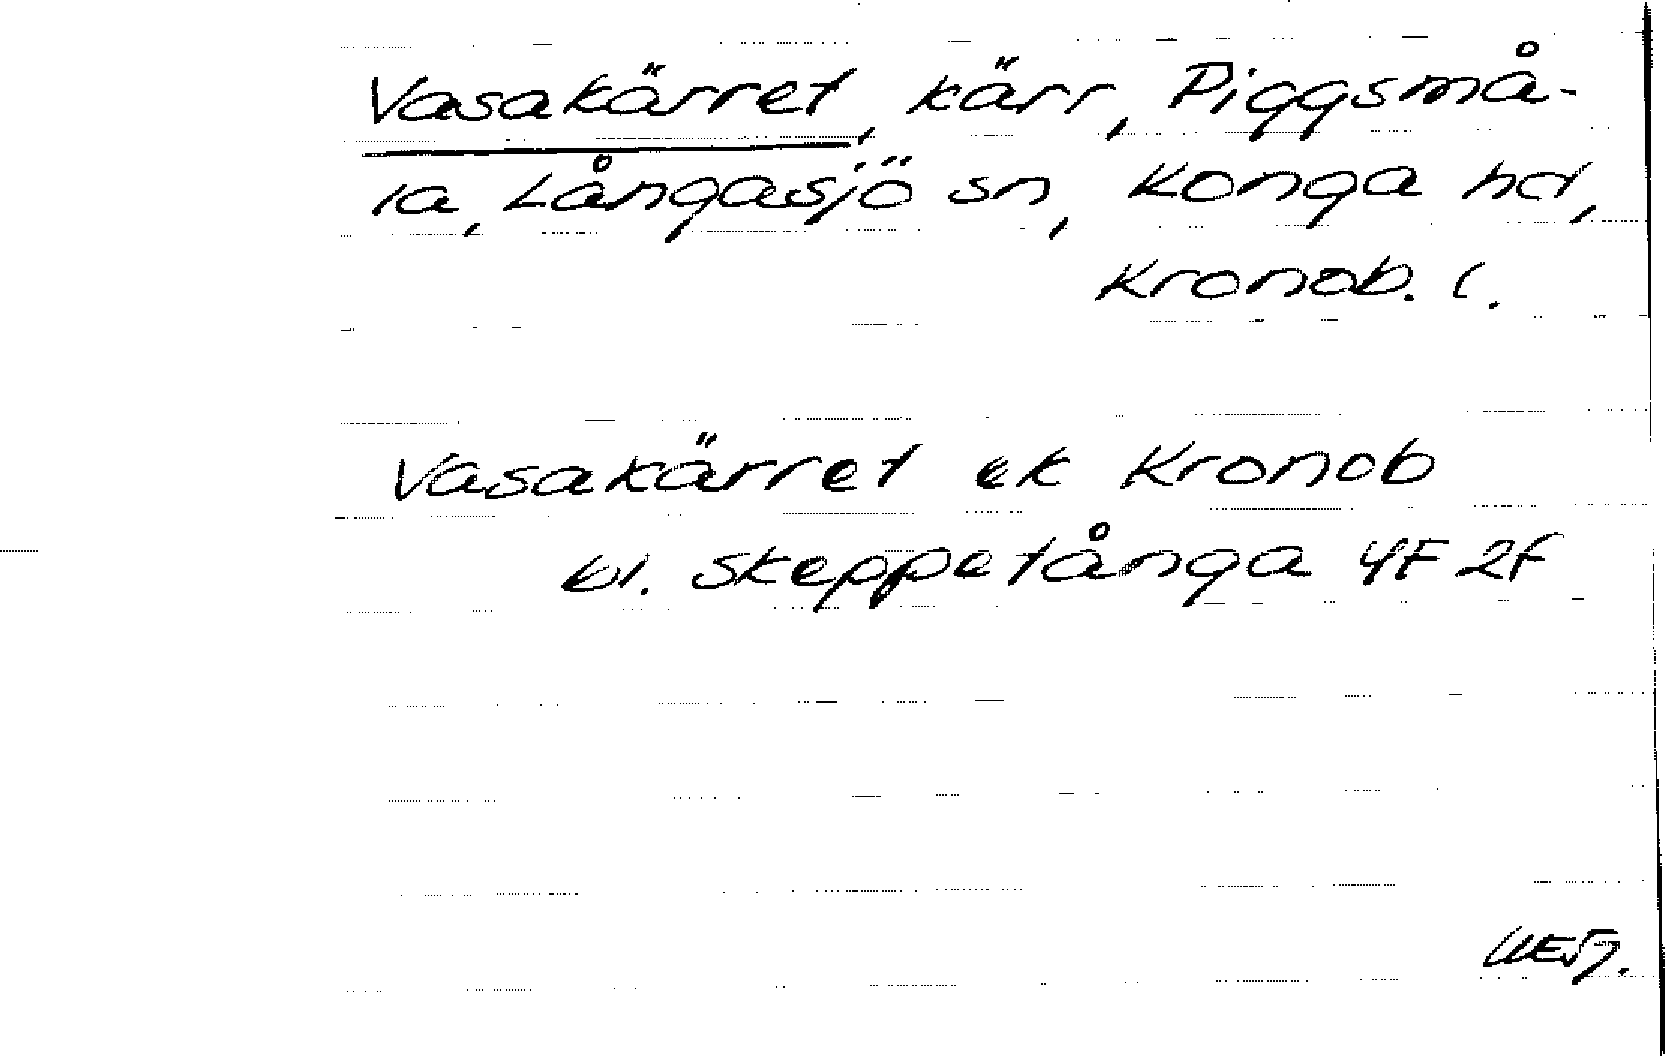 Vasakärret, kärr, Piggsmå-
la, Långasjö sn, Konga hd,
Kronob. l.
Vasakärret ek Kronob
bl. Skeppetånga 4F 2f